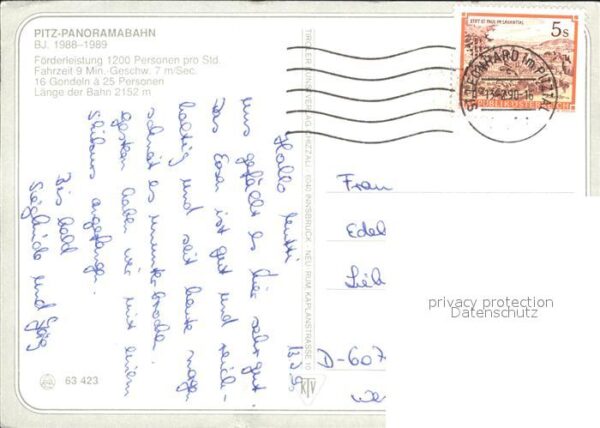 PITZ-PANORAMABAHN
BJ. 1988-1989
Förderleistung 1200 Personen pro Std.
Fahrzeit 9 Min. Geschw. 7 m/Sec.
16 Gondeln à 25 Personen
Länge der Bahn 2152 m
Hallo Mutti
uns gefällt es hier sehr gut
Das Essen ist gut und reich-
haltig und seit heute
schneit es ununterbrochen.
Gestern haben wir mit einem
Skikurs angefangen.
Bis bald
Sieglinde und Jörg
63 423
TIROLER KUNSTVERLAG CHIZZALI · 6040 INNSBRUCK · NEU-RUM KAPLANSTRASSE 10
KTV
STIFT ST. PAUL IM LAVANTTAL
5s
REPUBLIK ÖSTERREICH
ST. LEONHARD IM PITZTAL
Frau
Edel
Lieb
D-607
privacy protection
Datenschutz